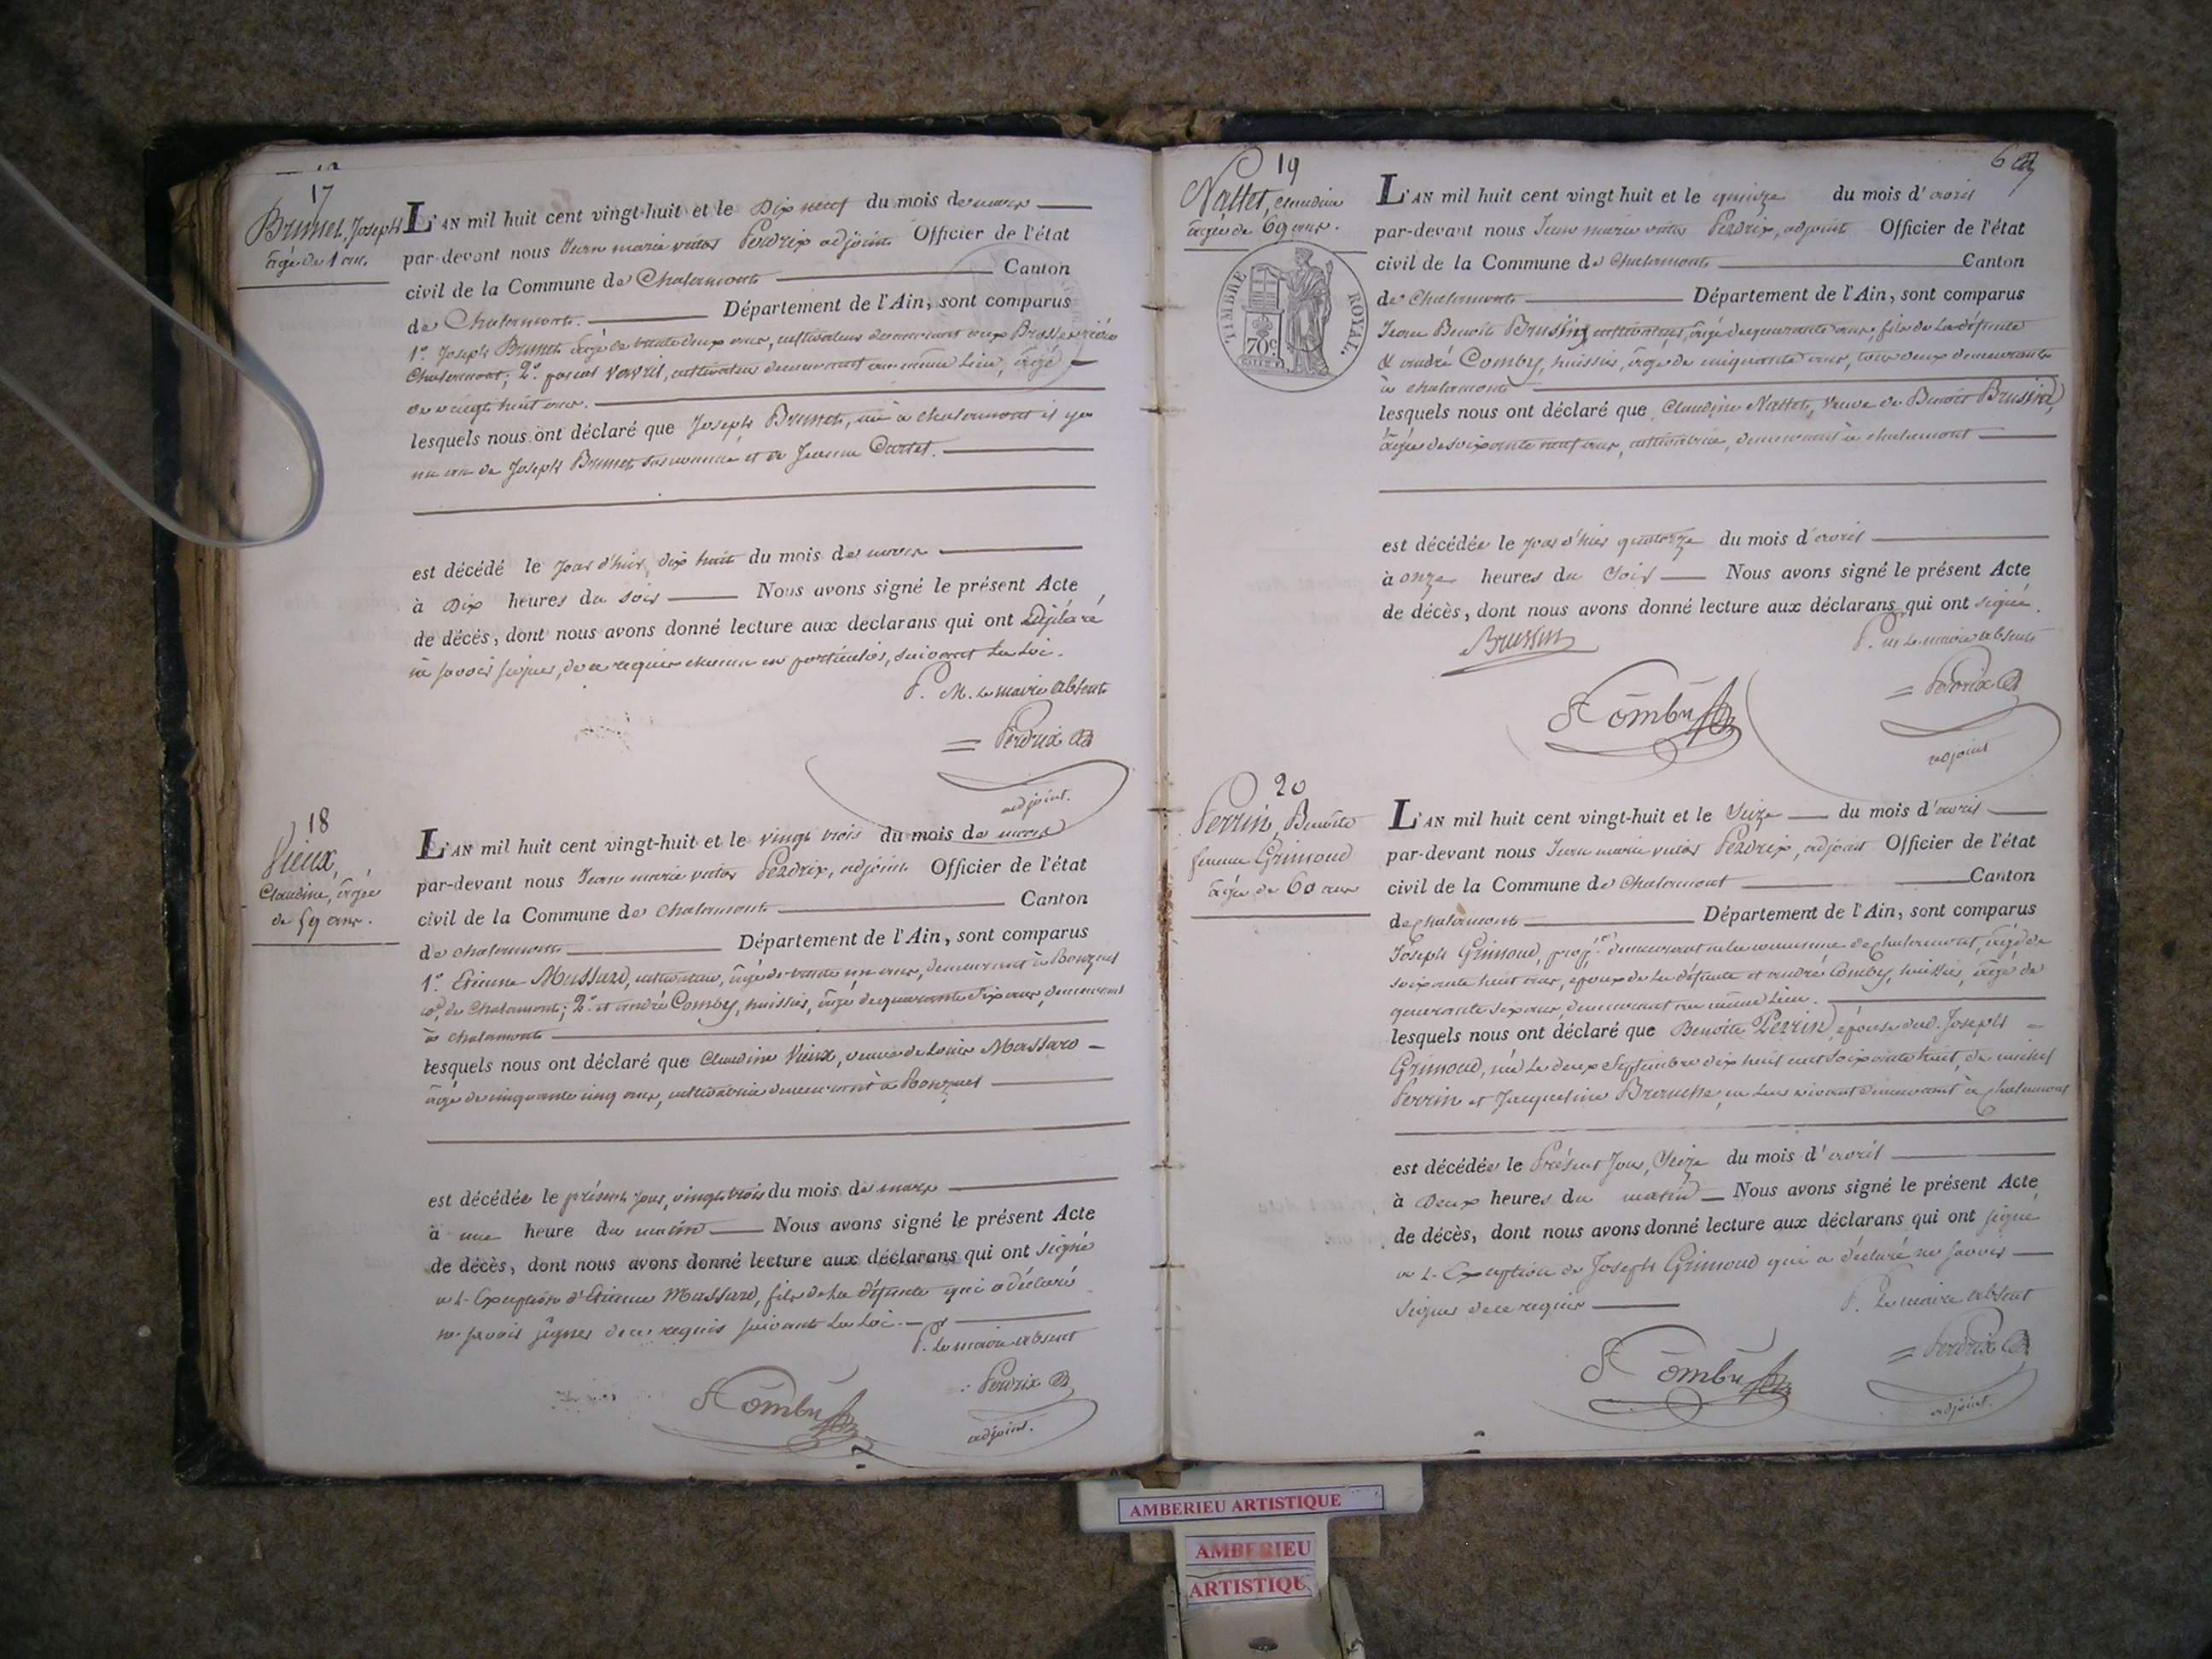 17
Brunet, Joseph
âgé de 1 an.
L'AN mil huit cent vingt-huit et le Dix neuf du mois de mars
par-devant nous Jean marie victor Perdrix adjoint Officier de l'état
civil de la Commune de Chalamont Canton
de Chalamont. Département de l'Ain, sont comparus
1º. Joseph Brunet âgé de trente deux ans, cultivateur demeurant aux
Chalamont; 2º. cultivateur demeurant au même Lieu, âgé
de vingt huit ans.
lesquels nous ont déclaré que Joseph Brunet, né à Chalamont il y a
un an de Joseph Brunet susnommé et de Jeanne
est décédé le jour d'hier, dix huit du mois de mars
à Dix heures du soir Nous avons signé le présent Acte
de décès, dont nous avons donné lecture aux déclarans qui ont déclaré
ne savoir signer, de ce requis chacun en particulier, suivant la Loi.
P. M. Le maire absent
Perdrix
adjoint.
18
Vieux,
Claudine, âgée
de 59 ans.
L'AN mil huit cent vingt-huit et le vingt trois du mois de mars
par-devant nous Jean marie victor Perdrix, adjoint Officier de l'état
civil de la Commune de Chalamont Canton
de Chalamont Département de l'Ain, sont comparus
1º. Etienne Massard, cultivateur, âgé de trente un ans, demeurant à
de Chalamont; 2º. et andré Comby, huissier, âgé de quarante six ans, demeurant
à Chalamont
lesquels nous ont déclaré que Claudine Vieux, veuve de Louis Massard
âgé de cinquante cinq ans, cultivatrice demeurant à
est décédée le présent jour, vingt trois du mois de mars
à une heure du matin Nous avons signé le présent Acte
de décès, dont nous avons donné lecture aux déclarans qui ont signé
à L'Exception d'Etienne Massard, fils de la défunte qui a déclaré
ne savoir signer de ce requis suivant La Loi.
P. Le maire absent
Combÿ
Perdrix
adjoint.
19
Nallet, Claudine
âgée de 69 ans.
TIMBRE ROYAL.
70c
L'AN mil huit cent vingt huit et le quinze du mois d'avril
par-devant nous Jean marie victor Perdrix, adjoint Officier de l'état
civil de la Commune de Chalamont Canton
de Chalamont Département de l'Ain, sont comparus
Jean Benoit Brussin, cultivateur, âgé de quarante ans, fils de La défunte
& andré Comby, huissier, âgé de cinquante ans, tous deux demeurants
à chalamont
lesquels nous ont déclaré que Claudine Nallet, Veuve de Benoit Brussin,
âgée de soixante neuf ans, cultivatrice, demeurant à chalamont
est décédée le jour d'hier quatorze du mois d'avril
à onze heures du Soir Nous avons signé le présent Acte
de décès, dont nous avons donné lecture aux déclarans qui ont signé.
Brussin
P. M. Le maire absent
Combÿ
Perdrix
adjoint
20
Perrin, Benoite
femme Grimoud
âgée de 60 ans
L'AN mil huit cent vingt-huit et le Seize du mois d'avril
par-devant nous Jean marie victor Perdrix, adjoint Officier de l'état
civil de la Commune de Chalamont Canton
de chalamont Département de l'Ain, sont comparus
Joseph Grimoud, demeurant en la commune de Chalamont, âgé de
soixante huit ans, époux de La défunte et andré Comby, huissier, âgé de
quarante six ans, demeurant au même Lieu.
lesquels nous ont déclaré que Benoite Perrin, épouse dud. Joseph
Grimoud, née Le deux Septembre dix huit cent soixante huit, de michel
Perrin et Jacqueline en Leur vivant demeurant à Chalamont
est décédée le Présent Jour, Seize du mois d'avril
à Deux heures du matin Nous avons signé le présent Acte
de décès, dont nous avons donné lecture aux déclarans qui ont signé
à L'Exception de Joseph Grimoud qui a déclaré ne savoir
signer de ce requis
P. Le maire absent
Combÿ
Perdrix
adjoint.
AMBERIEU ARTISTIQUE
AMBERIEU
ARTISTIQU